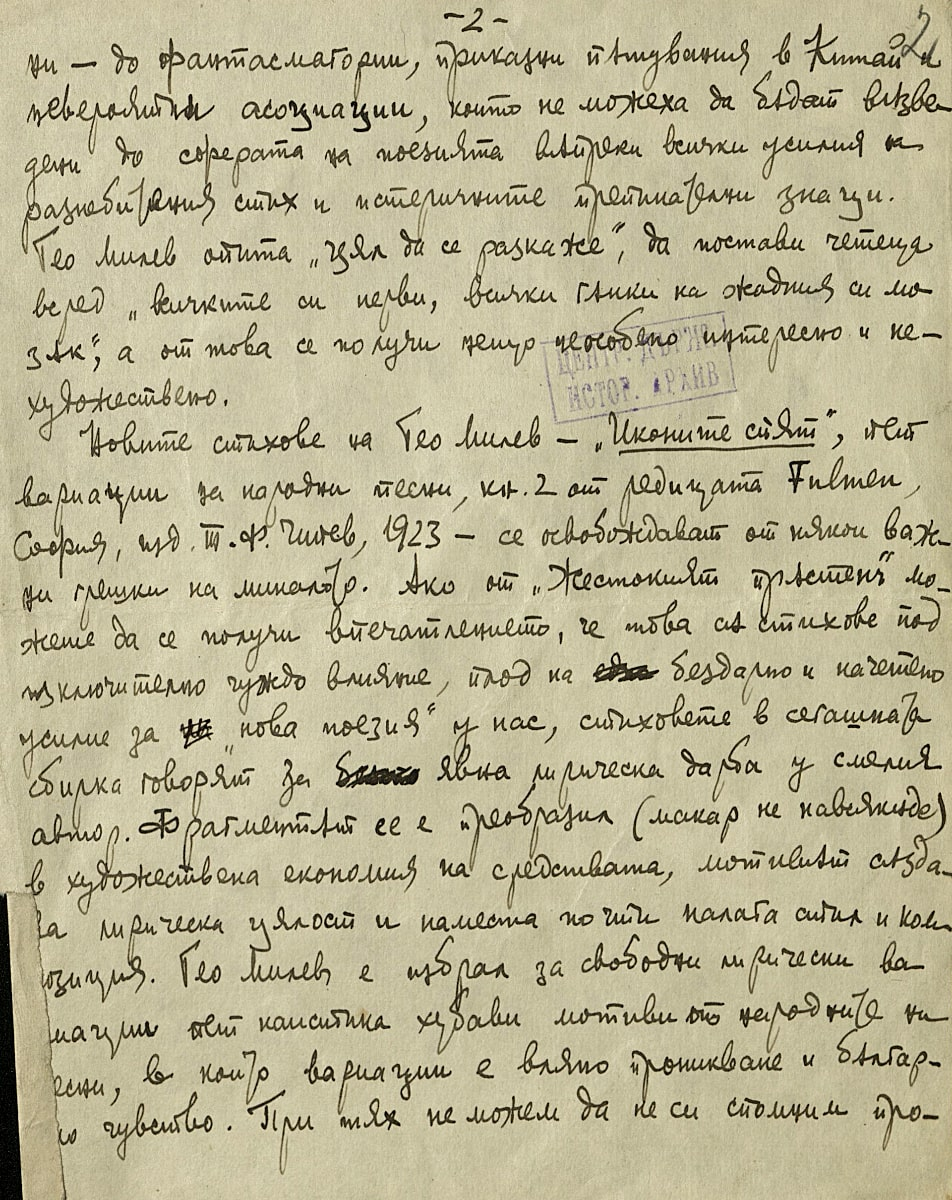 -2-
2
ни — до фантасмагории, приказни пѫтувания в Китай и
невероятни асоциации, които не можеха да бѫдат въззве-
дени до сферата на поезията въпреки всички усилия на
разнебитения стих и истеричните препинателни знаци.
Гео Милев опита „цял да се разкаже“, да постави четеца
всред „всичките си нерви, всички гънки на жадния си мо-
зък“, а от това се получи нещо неособено интересно и не-
художествено.
ЦЕНТР. ДЪРЖ.
ИСТОР. АРХИВ
Новите стихове на Гео Милев — „Иконите спят“, пет
вариации на народни песни, кн. 2 от редицата
София, изд. Т. Ф. Чипев, 1923 — се освобождават от някои важ-
ни грешки на миналото. Ако от „Жестокият пръстен“ мо-
жеше да се получи впечатлението, че това сѫ стихове под
изключително чуждо влияние, плод на бездарно и начетено
усилие за „нова поезия“ у нас, стиховете в сегашната
сбирка говорят за явна лирическа дарба у смелия
автор. Фрагментът се е преобразил (макар не навсякъде)
в художествена економия на средствата, мотивът създа-
ва лирическа цялост и наместа почти налага стил и ком-
позиция. Гео Милев е избрал за свободни лирически ва-
риации пет наистина хубави мотиви от народните ни
песни, в които вариации е вляно проникване и българ-
ско чувство. При тях не можем да не си спомним про-